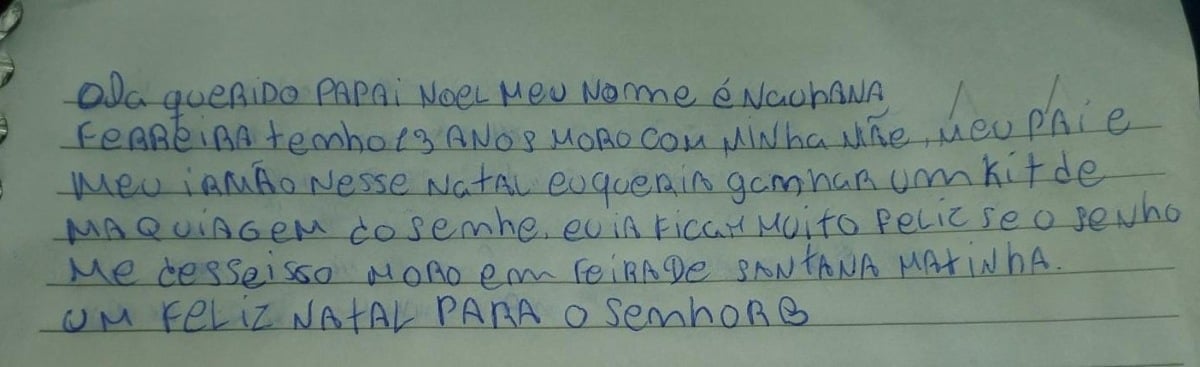 Ola QUERIDO PAPAi NOEL MEU Nome é NauhANA
FERREiRA temho 13 ANOS MORO COM MiNha MÃe, MEU PAi e
MEU iRMÃO Nesse NAtAL euqueRiA gamhar um kit de
MAQUiAGEM do semhe, eu iA FicaH MUito Feliz se o seNho
Me desseisso MORO em FeiRADe SANtANA MAtiNhA.
UM FeLiZ NAtAL PARA o semhORB